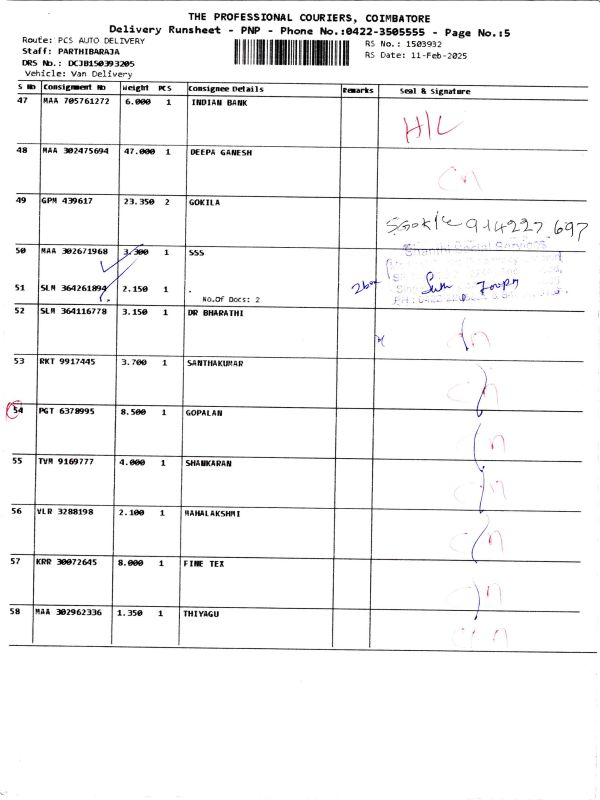 THE PROFESSIONAL COURIERS, COIMBATORE
Delivery Runsheet - PNP - Phone No.:0422-3505555 - Page No.:5
Route: PCS AUTO DELIVERY
RS No.: 1503932
Staff: PARTHIBARAJA
RS Date: 11-Feb-2025
DRS No.: DCJB150393205
Vehicle: Van Delivery
S No Consignment No Weight PCS Consignee Details Remarks Seal & Signature
47 MAA 705761272 6.000 1 INDIAN BANK
H/L
48 MAA 302475694 47.000 1 DEEPA GANESH
49 GPM 439617 23.350 2 GOKILA
914227 697
50 MAA 302671968 3.300 1 SSS
Shanthi Social Services
51 SLM 364261894 2.150 1 .
No.Of Docs: 2
52 SLM 364116778 3.150 1 DR BHARATHI
53 RKT 9917445 3.700 1 SANTHAKUMAR
54 PGT 6378995 8.500 1 GOPALAN
55 TVM 9169777 4.000 1 SHANKARAN
56 VLR 3288198 2.100 1 MAHALAKSHMI
57 KRR 30072645 8.000 1 FINE TEX
58 MAA 302962336 1.350 1 THIYAGU